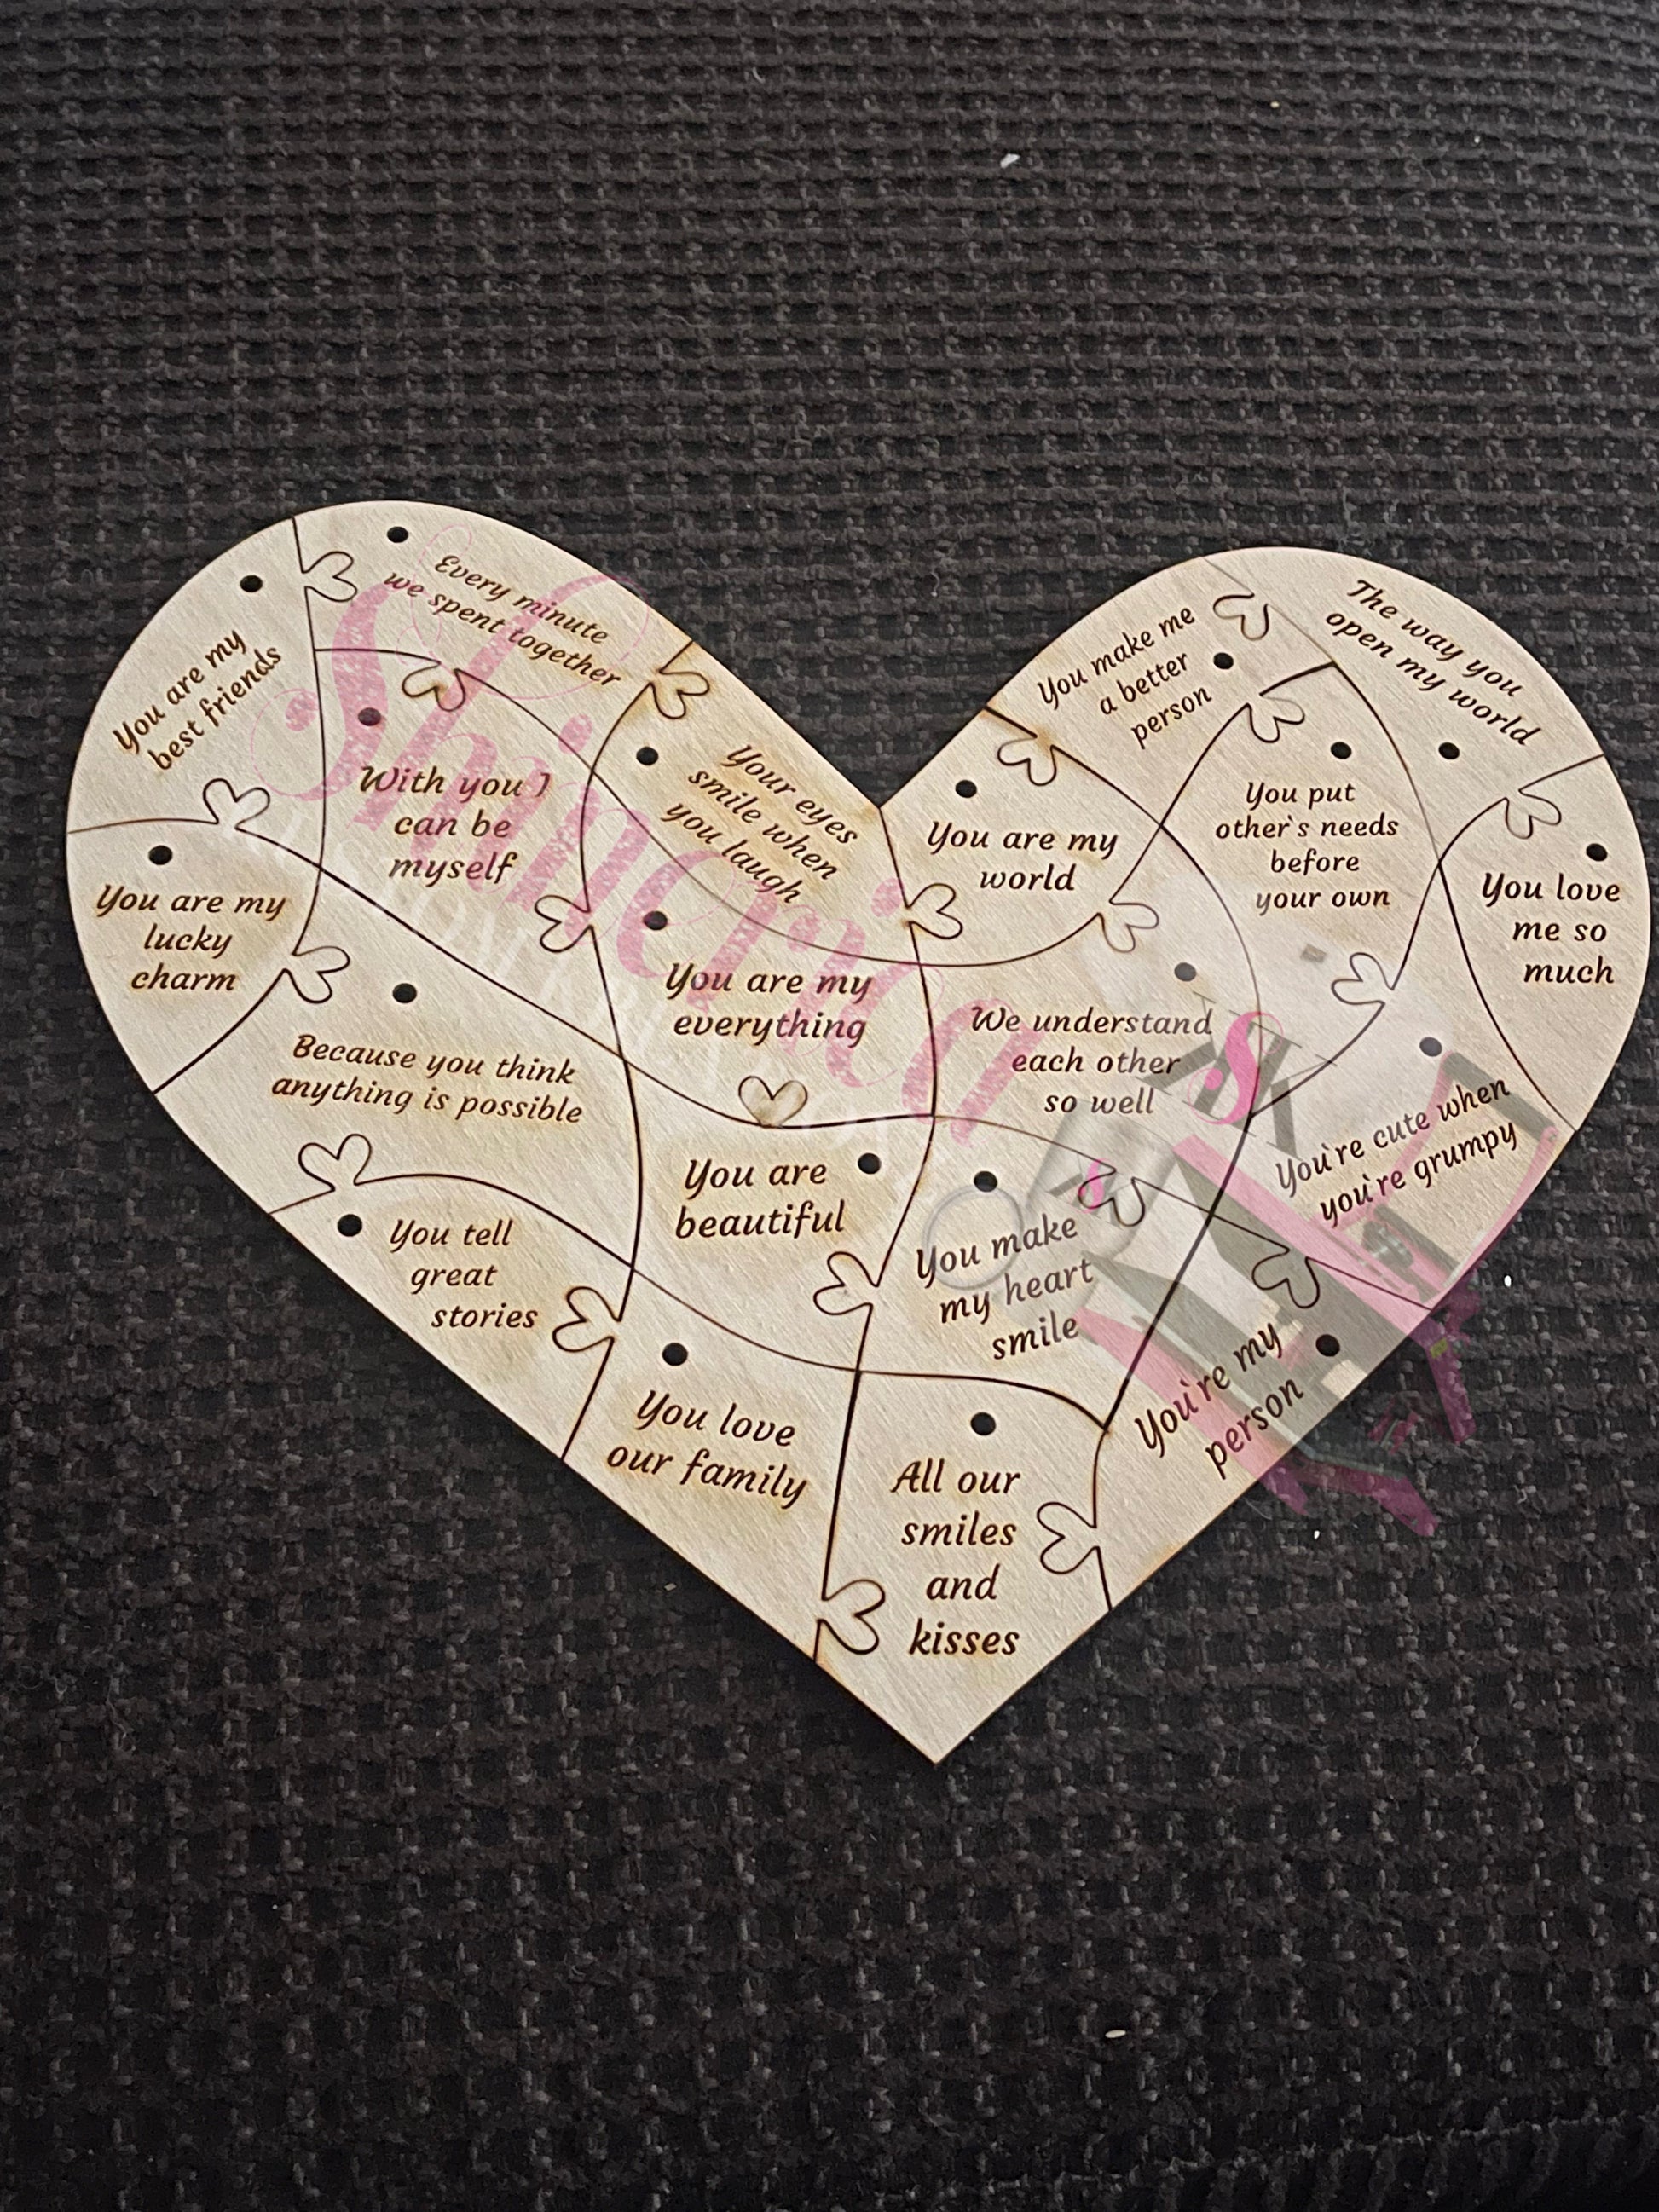 Every minute
we spent together
You are my
best friends
With you I
can be
myself
Your eyes
smile when
you laugh
You make me
a better
person
The way you
open my world
You are my
world
You put
other's needs
before
your own
You love
me so
much
You are my
lucky
charm
You are my
everything
We understand
each other
so well
Because you think
anything is possible
You're cute when
you're grumpy
You are
beautiful
You make
my heart
smile
You tell
great
stories
You're my
person
You love
our family
All our
smiles
and
kisses